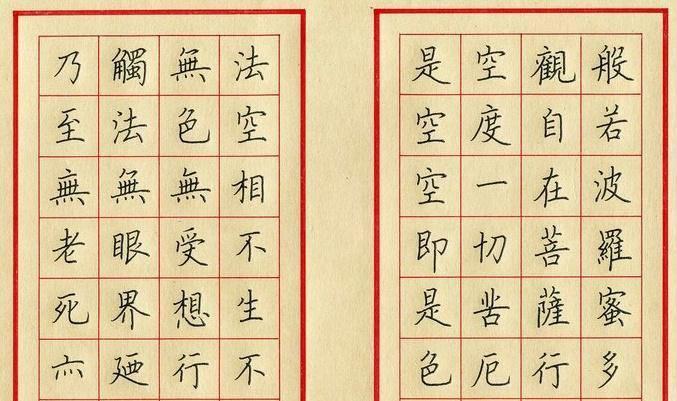 般若波羅蜜多
觀自在菩薩行
空度一切苦厄
是空空即是色
法空相不生不
無色無受想行
觸法無眼界廼
乃至無老死亦